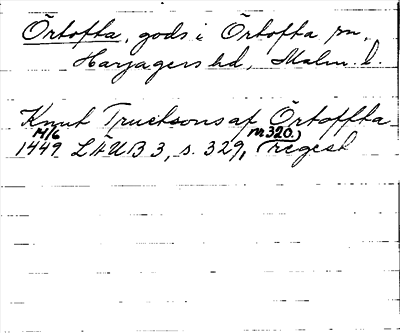 Örtofta, gods i Örtofta sn,
Harjagers hd, Malm. l.
Knut Trucksons af Örtoffta
14/6 nr 320)
1449 LÄUB 3, s. 329, (regest